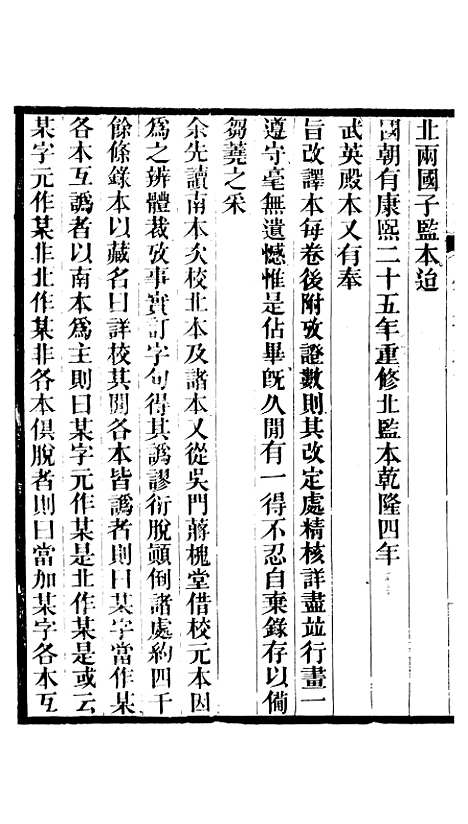 北兩國子監本迨
國朝有康熙二十五年重修北監本乾隆四年
武英殿本又有奉
旨改譯本每卷後附攷證數則其改定處精核詳盡並行畫一
遵守毫無遺憾惟是佔畢旣久閒有一得不忍自棄錄存以備
芻蕘之采
余先讀南本次校北本及諸本又從吳門蔣槐堂借校元本因
爲之辨體裁攷事實訂字句得其譌謬衍脫顚倒諸處約四千
餘條錄本以藏名曰詳校其閒各本皆譌者則曰某字當作某
各本互譌者以南本爲主則曰某字元作某是北作某是或云
某字元作某非北作某非各本俱脫者則曰當加某字各本互